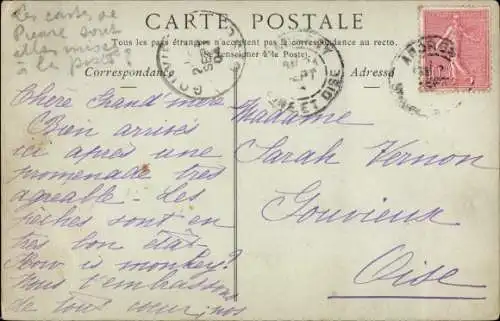 Les cartes de
Pierre sont
elles mises à
la poste?
CARTE POSTALE
Tous les pays étrangers n'acceptent pas la correspondance au recto.
(Se renseigner à la Poste).
Correspondance
Adresse
GOUVIEUX
SEPT
SEINE ET OISE
Chère Grand'mère
Bien arrivés
ici après une
promenade très
agréable. Les
pêches sont en
très bon état
How is monkey?
Nous t'embrassons
de tout cœur, nos
Madame
Sarah Vernon
Gouvieux
Oise